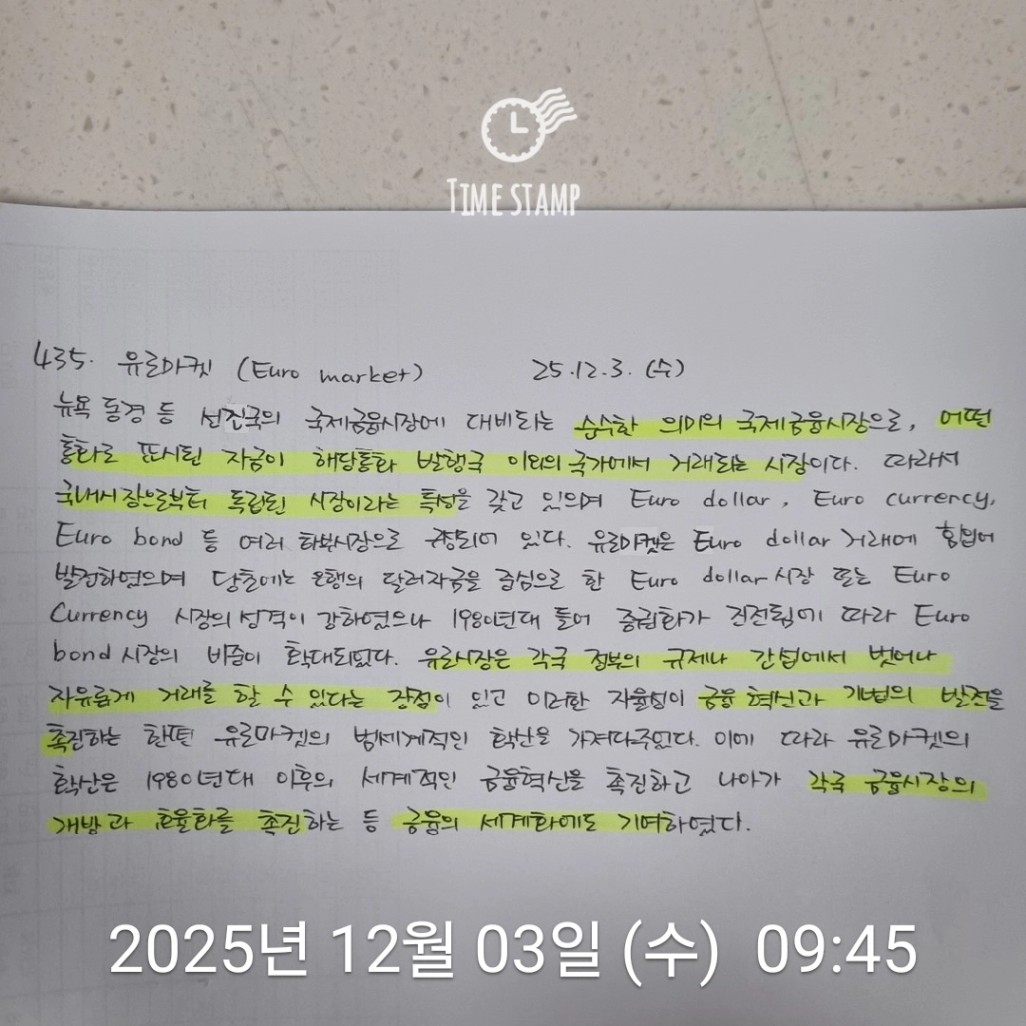 TIME STAMP
435. 유로마켓 (Euro market) 25.12.3. (수)
뉴욕 동경 등 선진국의 국제금융시장에 대비되는 순수한 의미의 국제금융시장으로, 어떤
통화로 표시된 자금이 해당통화 발행국 이외의 국가에서 거래되는 시장이다. 따라서
국내시장으로부터 독립된 시장이라는 특성을 갖고 있으며 Euro dollar, Euro currency,
Euro bond 등 여러 하부시장으로 구성되어 있다. 유로마켓은 Euro dollar 거래에 힘입어
발전하였으며 당초에는 은행의 달러자금을 중심으로 한 Euro dollar 시장 또는 Euro
Currency 시장의 성격이 강하였으나 1980년대 들어 증권화가 진전됨에 따라 Euro
bond 시장의 비중이 확대되었다. 유로시장은 각국 정부의 규제나 간섭에서 벗어나
자유롭게 거래를 할 수 있다는 장점이 있고 이러한 자율성이 금융 혁신과 기법의 발전을
촉진하는 한편 유로마켓의 범세계적인 확산을 가져다주었다. 이에 따라 유로마켓의
확산은 1980년대 이후의 세계적인 금융혁신을 촉진하고 나아가 각국 금융시장의
개방과 효율화를 촉진하는 등 금융의 세계화에도 기여하였다.
2025년 12월 03일 (수) 09:45